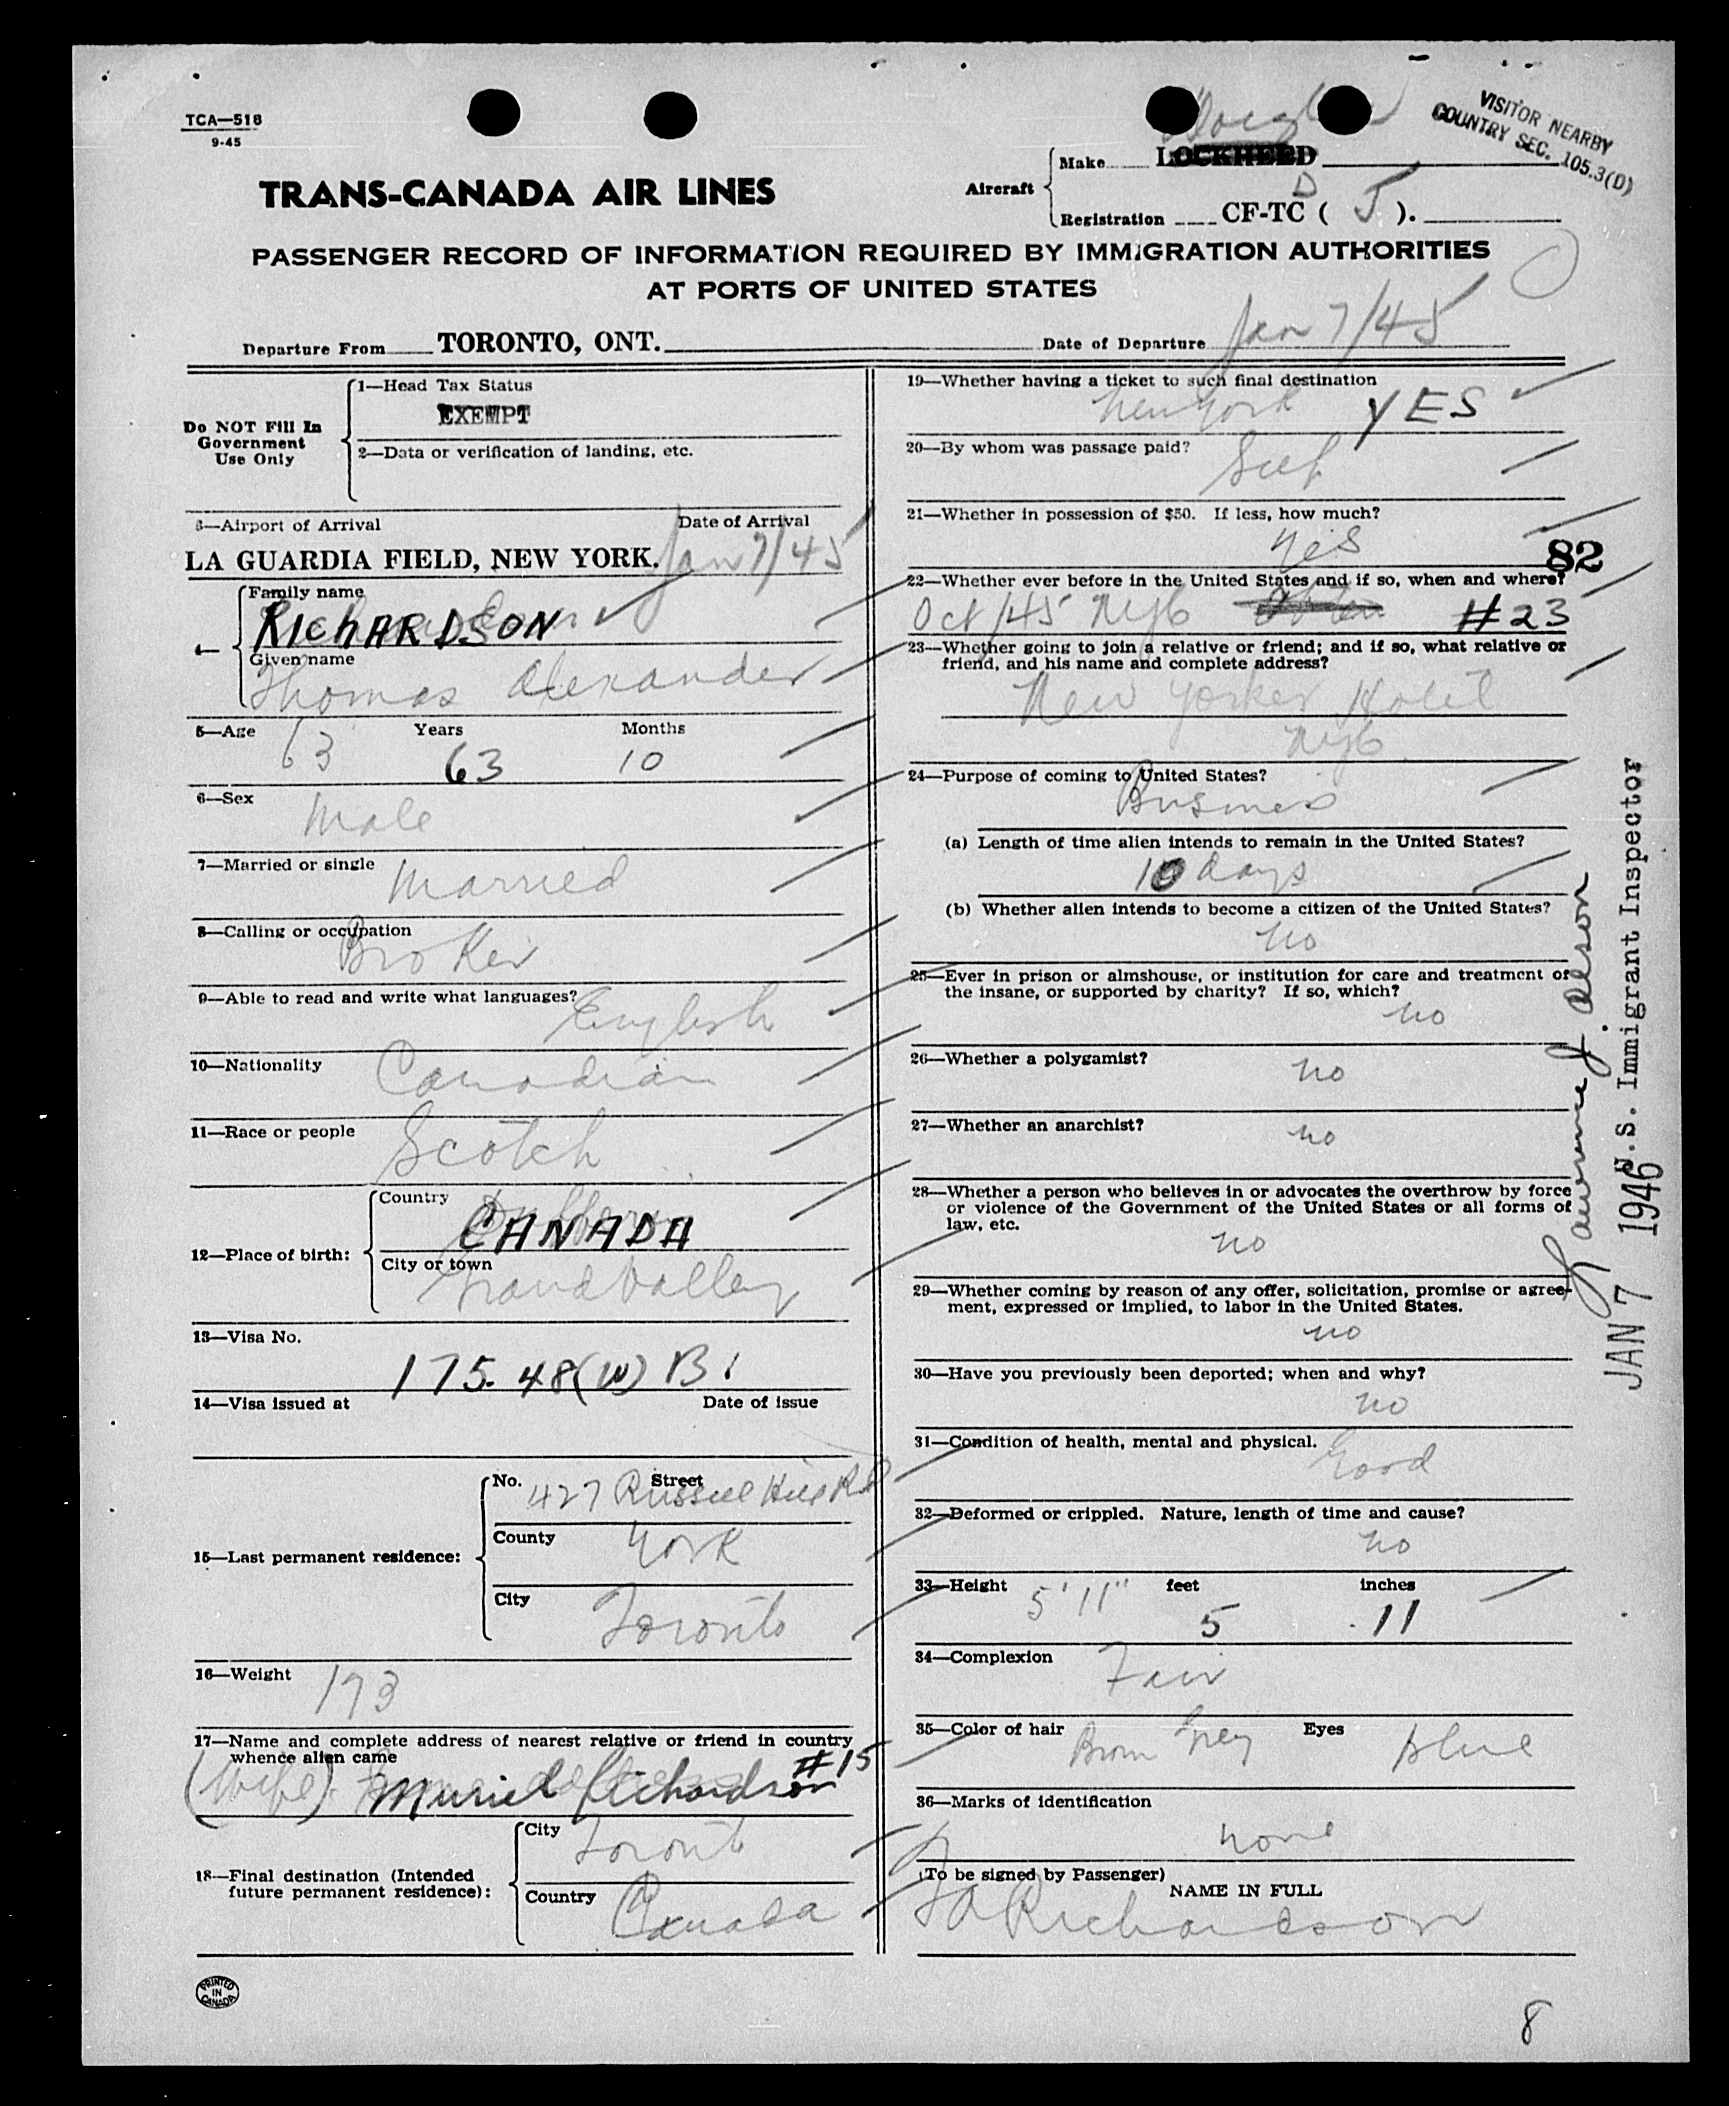 TCA—518
9-45
TRANS-CANADA AIR LINES
Aircraft
Make
LOCKHEED
Registration CF-TC ( J ).
D
VISITOR NEARBY
COUNTRY SEC. 105.3(D)
PASSENGER RECORD OF INFORMATION REQUIRED BY IMMIGRATION AUTHORITIES
AT PORTS OF UNITED STATES
Departure From TORONTO, ONT.
Date of Departure Jan 7/45
Do NOT Fill In
Government
Use Only
1—Head Tax Status
EXEMPT
2—Data or verification of landing, etc.
3—Airport of Arrival Date of Arrival
LA GUARDIA FIELD, NEW YORK. Jan 7/45
4—
Family name
RICHARDSON
Given name
Thomas Alexander
5—Age 63 Years 63 Months 10
6—Sex Male
7—Married or single Married
8—Calling or occupation
Broker
9—Able to read and write what languages? English
10—Nationality Canadian
11—Race or people Scotch
12—Place of birth:
Country
CANADA
City or town
Grand Valley
13—Visa No.
175.48(W) B1
14—Visa issued at Date of issue
15—Last permanent residence:
No. 427 Street Russell Hill Rd
County York
City Toronto
16—Weight 173
17—Name and complete address of nearest relative or friend in country
whence alien came
(Wife) Muriel Richardson #15
18—Final destination (Intended
future permanent residence):
City Toronto
Country Canada
PRINTED
IN
CANADA
19—Whether having a ticket to such final destination
New York YES
20—By whom was passage paid?
Self
21—Whether in possession of $50. If less, how much?
Yes
82
22—Whether ever before in the United States and if so, when and where?
Oct /45 NYC #23
23—Whether going to join a relative or friend; and if so, what relative or
friend, and his name and complete address?
New Yorker Hotel
NYC
24—Purpose of coming to United States?
Business
(a) Length of time alien intends to remain in the United States?
10 days
(b) Whether alien intends to become a citizen of the United States?
No
25—Ever in prison or almshouse, or institution for care and treatment of
the insane, or supported by charity? If so, which?
No
26—Whether a polygamist?
No
27—Whether an anarchist?
No
28—Whether a person who believes in or advocates the overthrow by force
or violence of the Government of the United States or all forms of
law, etc.
No
29—Whether coming by reason of any offer, solicitation, promise or agree-
ment, expressed or implied, to labor in the United States.
No
30—Have you previously been deported; when and why?
No
31—Condition of health, mental and physical.
Good
32—Deformed or crippled. Nature, length of time and cause?
No
33—Height 5'11" feet inches
5 11
34—Complexion Fair
35—Color of hair Brown Grey Eyes Blue
36—Marks of identification
None
(To be signed by Passenger)
NAME IN FULL
TA Richardson
Lawrence J. Olson
U.S. Immigrant Inspector
JAN 7 1946
8